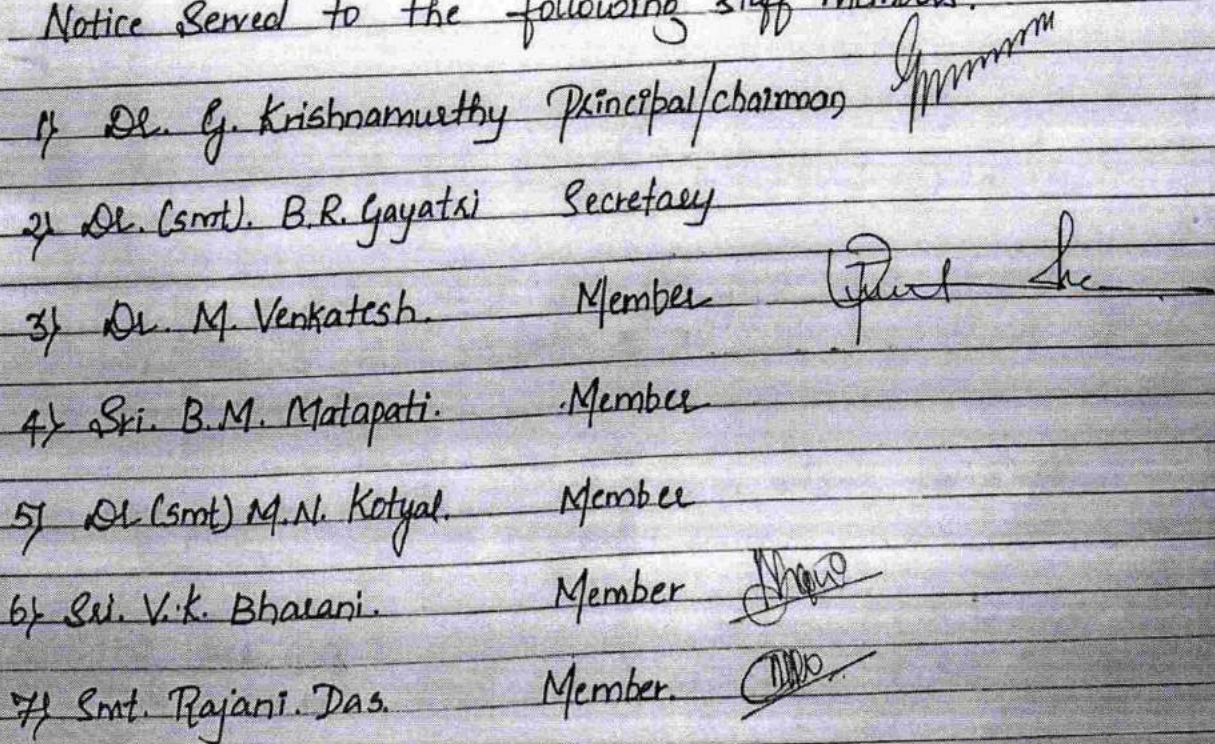 Notice Served to the following staff members.
1) Dr. G. Krishnamurthy Principal/chairman
2) Dr. (smt). B.R. Gayatri Secretary
3) Dr. M. Venkatesh. Member
4) Sri. B.M. Matapati. Member
5) Dr (smt) M.N. Kotyal. Member
6) Sri. V.K. Bharani. Member
7) Smt. Rajani. Das. Member.